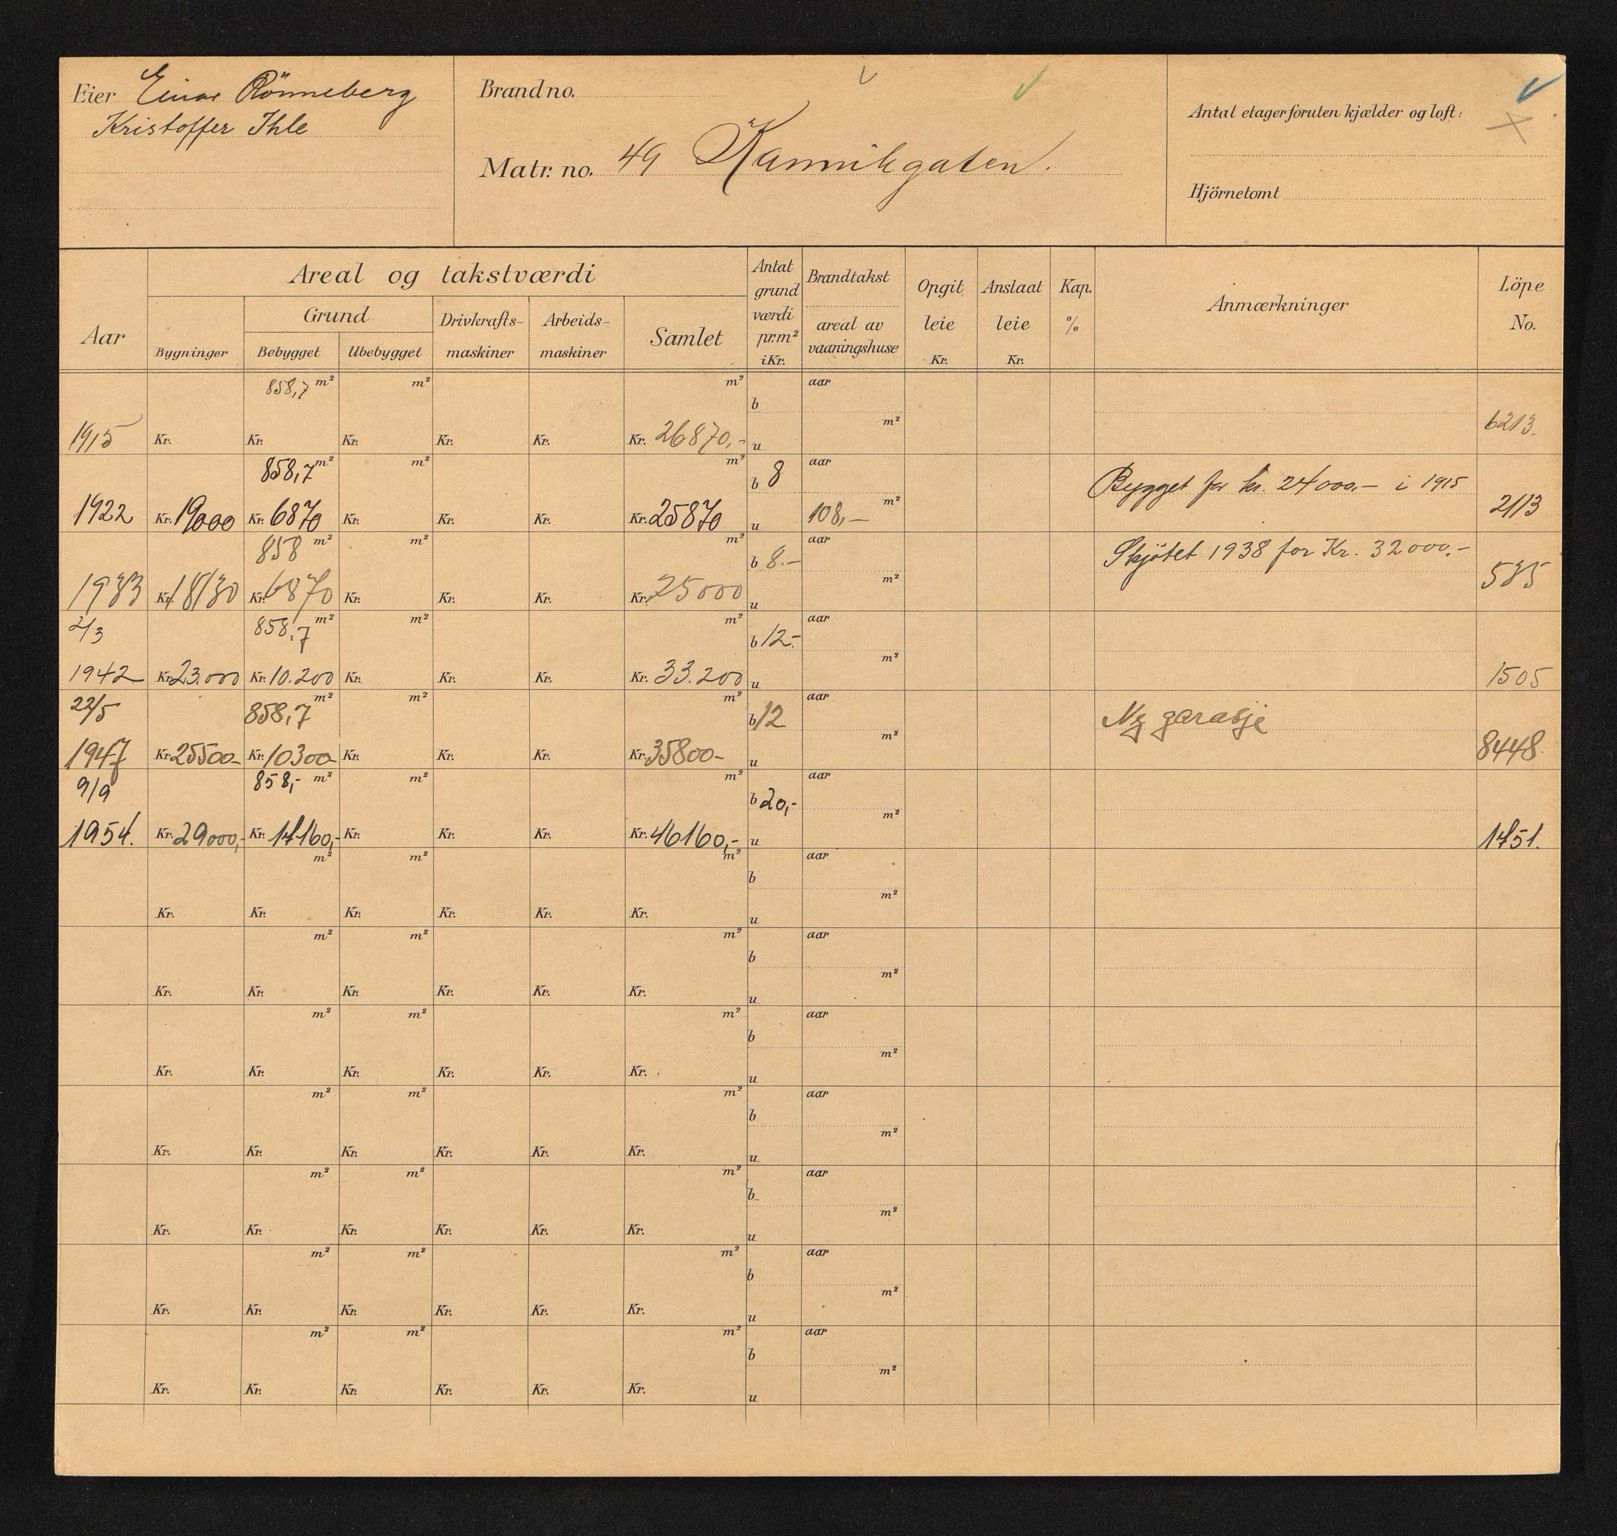 Eier Einar Rönneberg
Kristoffer Ihle
Brand no.
Matr. no. 49 Kannikgaten.
Antal etager foruten kjælder og loft:
Hjörnetomt
Aar
Areal og takstværdi
Bygninger
Grund
Bebygget Ubebygget
Drivkrafts-maskiner
Arbeids-maskiner
Samlet
Antat grund værdi pr.m² i Kr.
Brandtakst
areal av vaaningshuse
Opgit leie Kr.
Anslaat leie Kr.
Kap. %
Anmærkninger
Löpe No.
858,7 m² m² m² b aar
1915 Kr. Kr. Kr. Kr. Kr. Kr. 26870,- u m² 6213.
858,7 m² m² m² b 8 aar Bygget for kr. 24000,- i 1915
1922 Kr. 19000 Kr. 6870 Kr. Kr. Kr. Kr. 25870 u 108,- m² 2113
858 m² m² m² b 8.- aar Skjøtet 1938 for Kr. 32000,-
1933 Kr. 18130 Kr. 6870 Kr. Kr. Kr. Kr. 25000 u m² 535
2/3 858,7 m² m² m² b 12.- aar
1942 Kr. 23.000 Kr. 10.200 Kr. Kr. Kr. Kr. 33.200 u m² 1505
22/5 858,7 m² m² m² b 12 aar Ny garasje
1947 Kr. 25500- Kr. 10300- Kr. Kr. Kr. Kr. 35800- u m² 8448.
9/9 858,- m² m² m² b 20,- aar
1954. Kr. 29000,- Kr. 17160,- Kr. Kr. Kr. Kr. 46160,- u m² 1751.
m² m² m² b aar
Kr. Kr. Kr. Kr. Kr. Kr. u m²
m² m² m² b aar
Kr. Kr. Kr. Kr. Kr. Kr. u m²
m² m² m² b aar
Kr. Kr. Kr. Kr. Kr. Kr. u m²
m² m² m² b aar
Kr. Kr. Kr. Kr. Kr. Kr. u m²
m² m² m² b aar
Kr. Kr. Kr. Kr. Kr. Kr. u m²
m² m² m² b aar
Kr. Kr. Kr. Kr. Kr. Kr. u m²
m² m² m² b aar
Kr. Kr. Kr. Kr. Kr. Kr. u m²